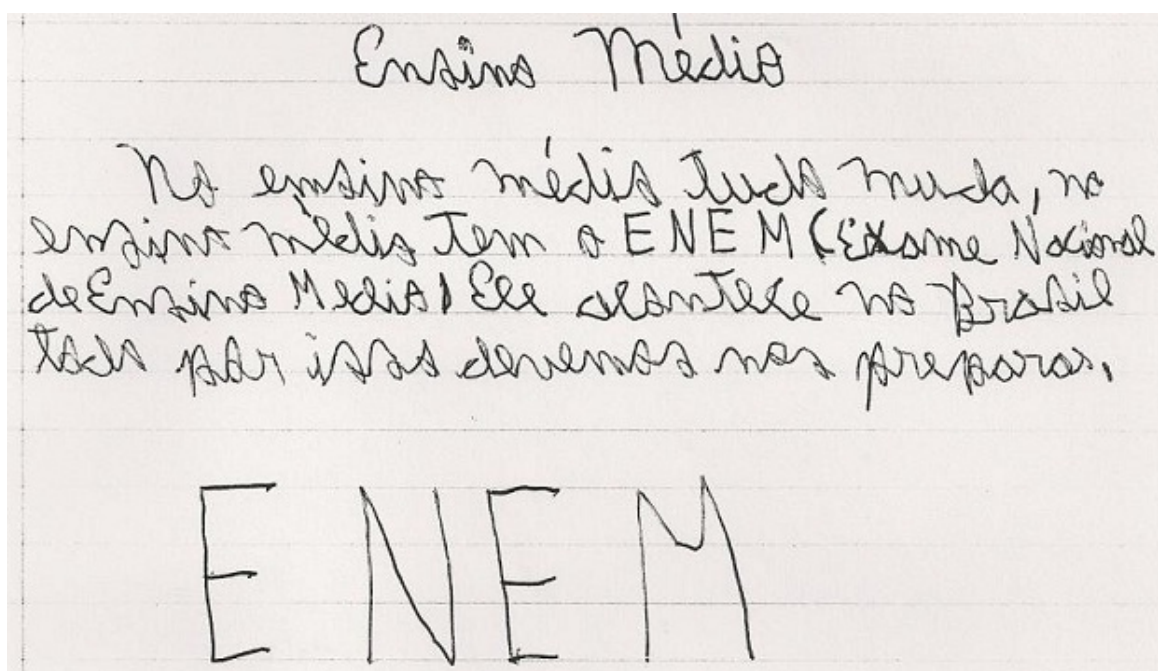 Ensino Médio
No ensino médio tudo muda, no
ensino médio tem o ENEM (Exame Nacional
de Ensino Medio) Ele acontece no Brasil
todo por isso devemos nos preparar.
ENEM